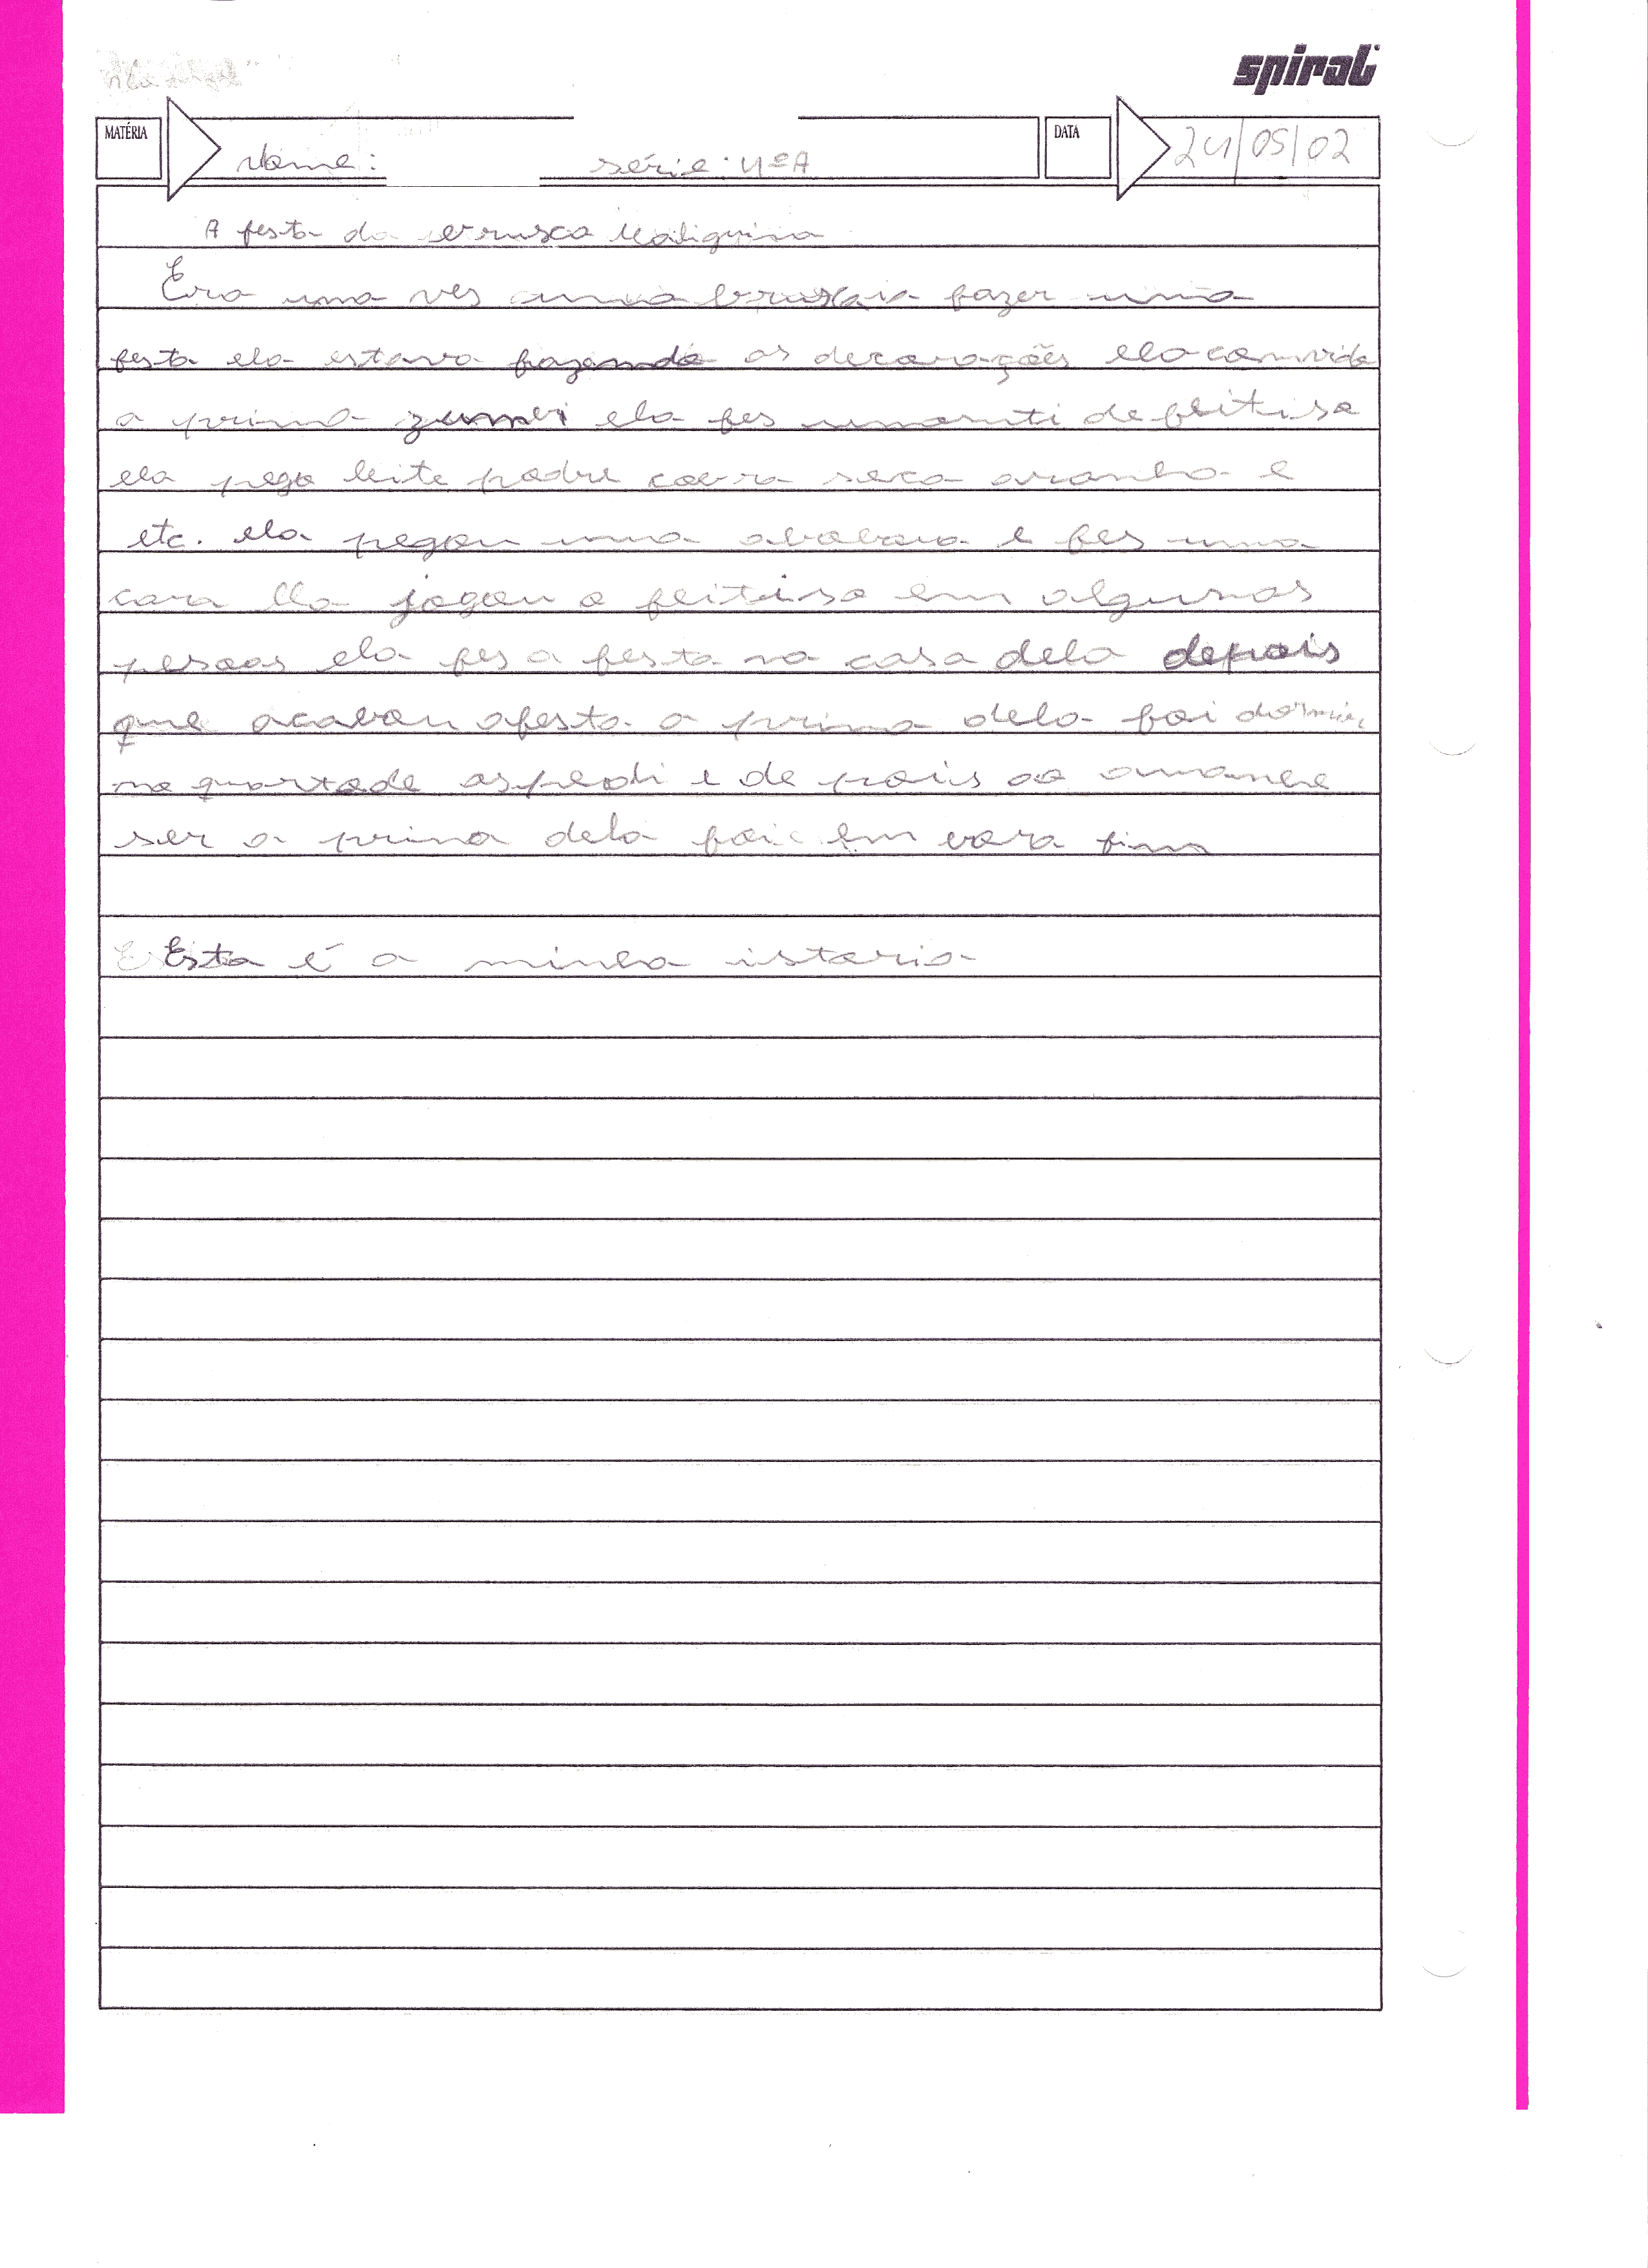 spiral
MATÉRIA Nome: série: 4ª A DATA 24/05/02
A festa da brusca Maliguina
Era uma ves uma brusca ia fazer uma
festa ela estava fazendo as decorações ela comvido
a prima zumbi ela fes um monti de feitiso
ela pego leite podre cobra seca aranha e
etc. ela pegou uma abobora e fes uma
cara Ela jogou o feitiso em algumas
pesoas ela fes a festa na casa dela depois
que acabou afesta a prima dela foi dormir
no quartode ospedi e de pois ao amanhe
ser a prima dela foi em bora fim
Esta é a minha istoria